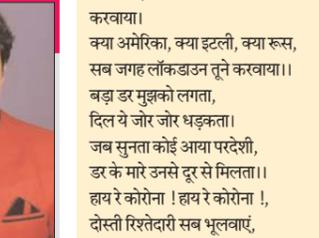 करवाया।
क्या अमेरिका, क्या इटली, क्या रूस,
सब जगह लॉकडाउन तूने करवाया।।
बड़ा डर मुझको लगता,
दिल ये जोर जोर धड़कता।
जब सुनता कोई आया परदेशी,
डर के मारे उनसे दूर से मिलता।।
हाय रे कोरोना ! हाय रे कोरोना !,
दोस्ती रिश्तेदारी सब भूलवाएं,